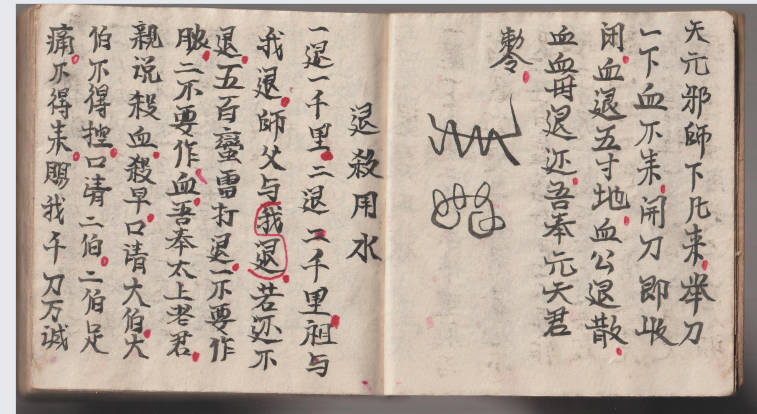 天元邪師下凡来举刀
一下血不来開刀即收
闭血退五寸地血公退散
血血毋退还吾奉元天君
勅令
退殺用水
一退一千里二退二千里祖与
我退師父与我退若还不
退五百蠻雷打退一不要作
膿二不要作血吾奉太上老君
親说殺血殺早口请大伯大
伯不得捏口请二伯二伯足
痛不得来賜我千刀万诚